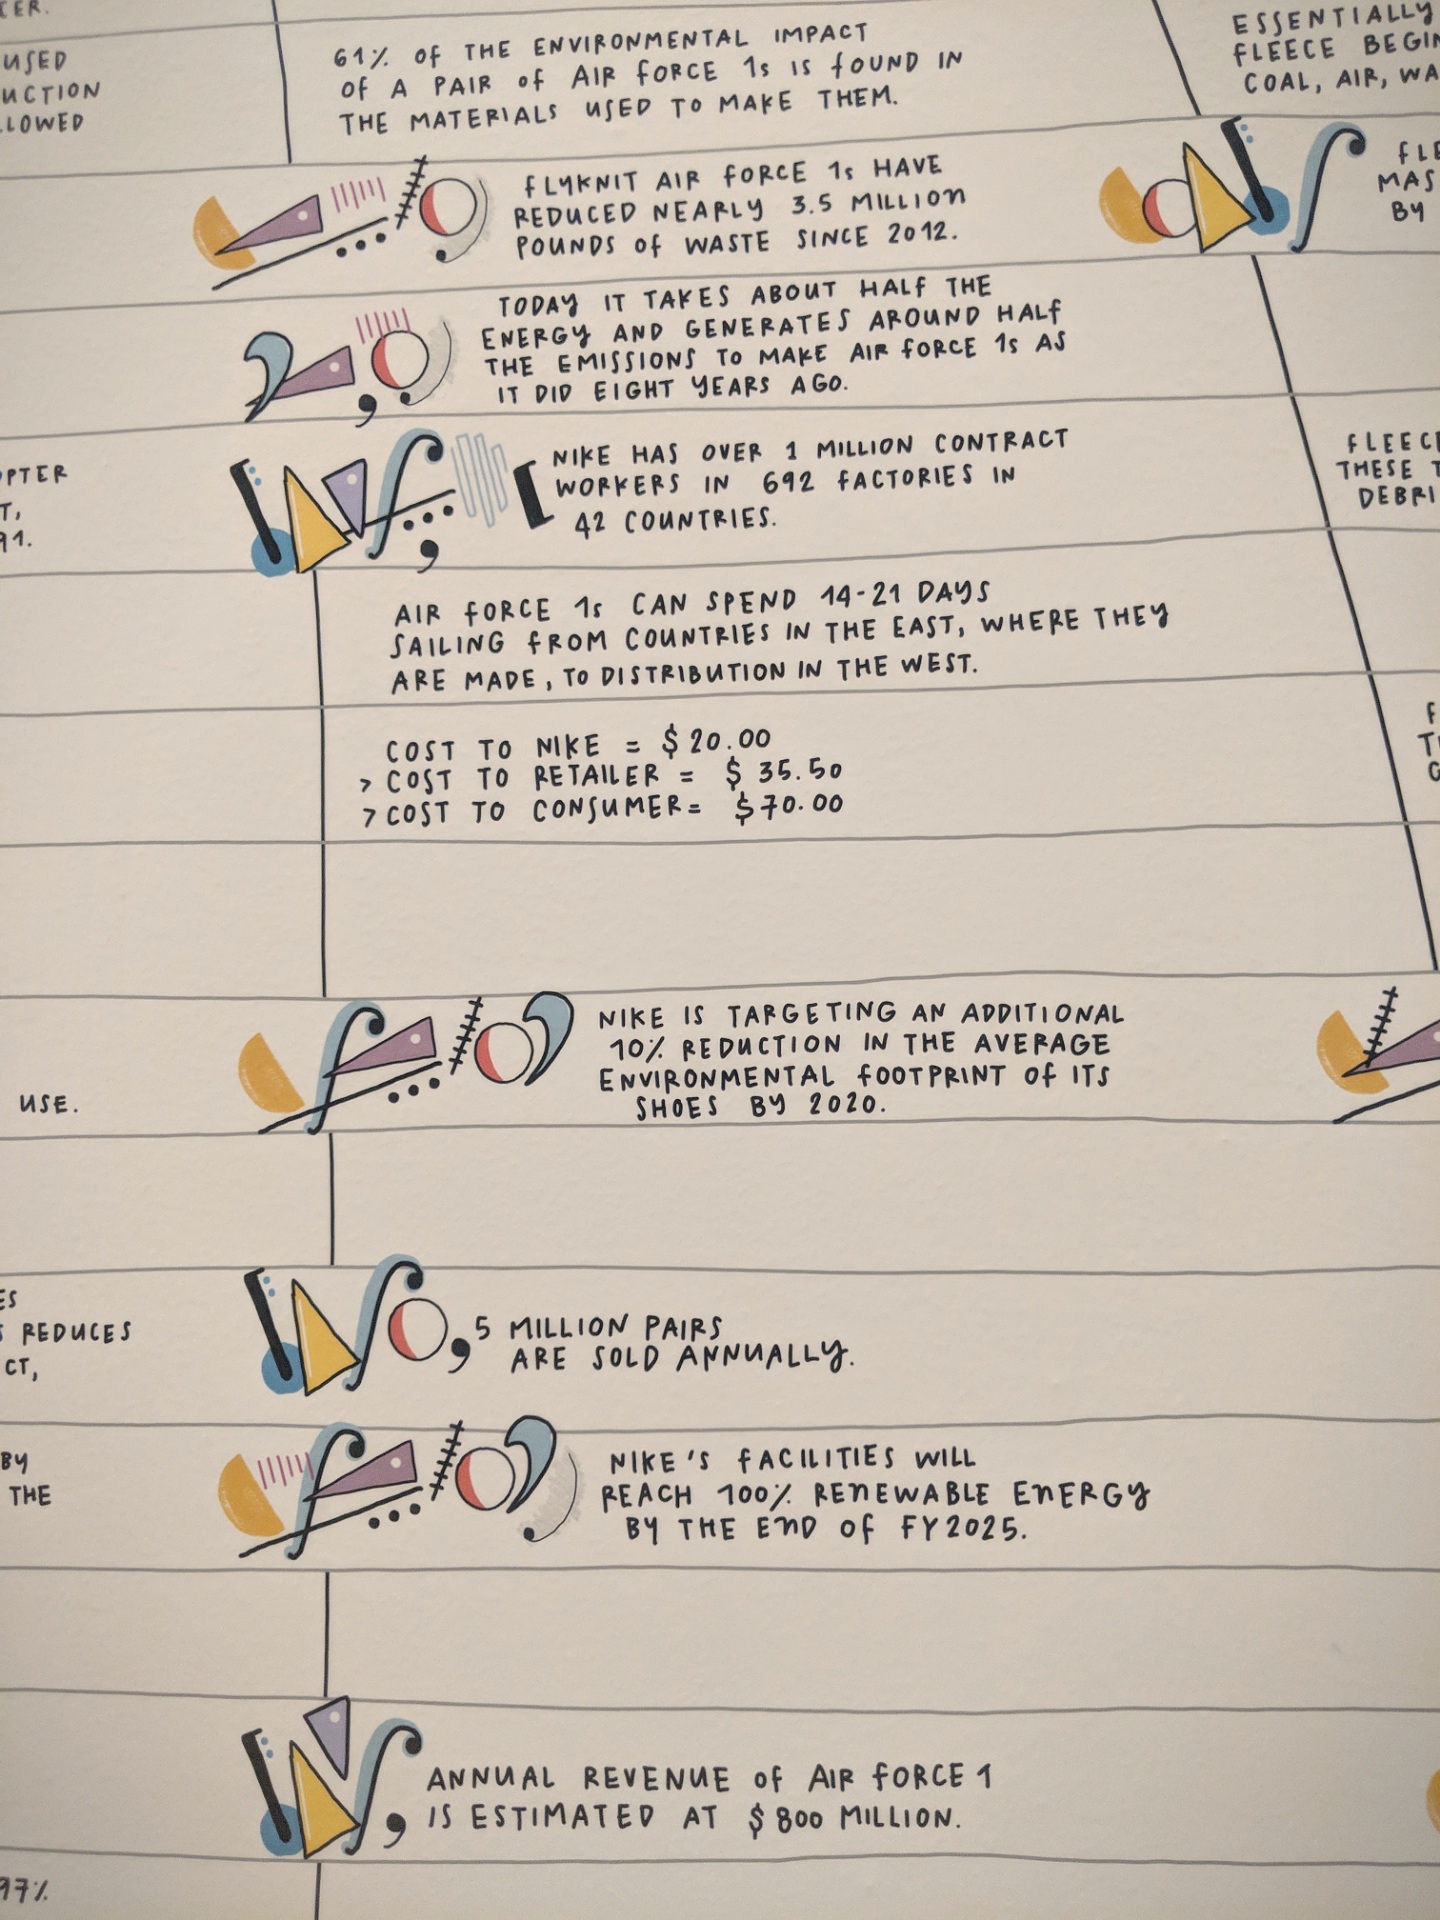 USED
61% OF THE ENVIRONMENTAL IMPACT
OF A PAIR OF AIR FORCE 1s IS FOUND IN
THE MATERIALS USED TO MAKE THEM.
ESSENTIALLY
FLEECE
COAL, AIR,
FLYKNIT AIR FORCE 1s HAVE
REDUCED NEARLY 3.5 MILLION
POUNDS OF WASTE SINCE 2012.
BY
TODAY IT TAKES ABOUT HALF THE
ENERGY AND GENERATES AROUND HALF
THE EMISSIONS TO MAKE AIR FORCE 1s AS
IT DID EIGHT YEARS AGO.
NIKE HAS OVER 1 MILLION CONTRACT
WORKERS IN 692 FACTORIES IN
42 COUNTRIES.
THESE
AIR FORCE 1s CAN SPEND 14-21 DAYS
SAILING FROM COUNTRIES IN THE EAST, WHERE THEY
ARE MADE, TO DISTRIBUTION IN THE WEST.
COST TO NIKE = $20.00
> COST TO RETAILER = $35.50
> COST TO CONSUMER = $70.00
NIKE IS TARGETING AN ADDITIONAL
10% REDUCTION IN THE AVERAGE
ENVIRONMENTAL FOOTPRINT OF ITS
SHOES BY 2020.
USE.
REDUCES
5 MILLION PAIRS
ARE SOLD ANNUALLY.
BY
THE
NIKE'S FACILITIES WILL
REACH 100% RENEWABLE ENERGY
BY THE END OF FY2025.
ANNUAL REVENUE OF AIR FORCE 1
IS ESTIMATED AT $800 MILLION.
97%